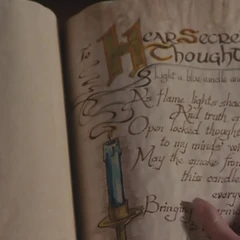 To Hear Secret
Thought
Light a blue candle an
As flame lights shad
And truth en
Open locked though
to my minds wi
May the smoke from
this candle
every
Bringing